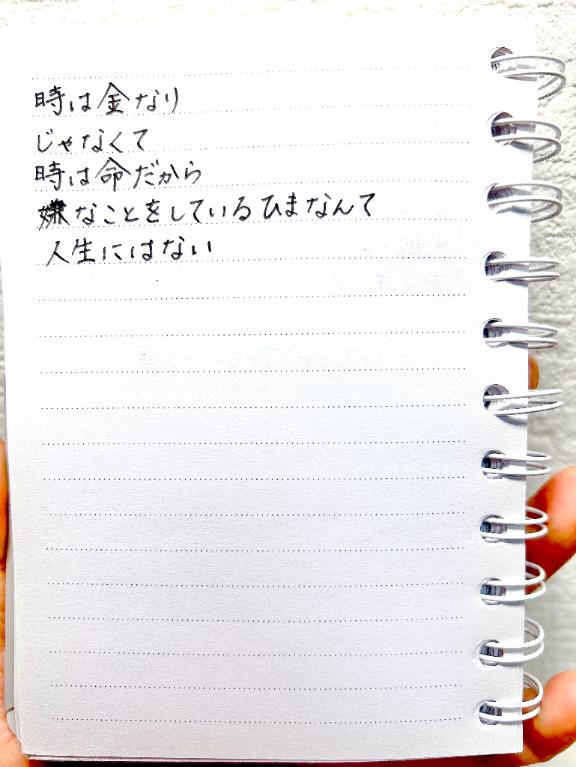 時は金なり
じゃなくて
時は命だから
嫌なことをしているひまなんて
人生にはない